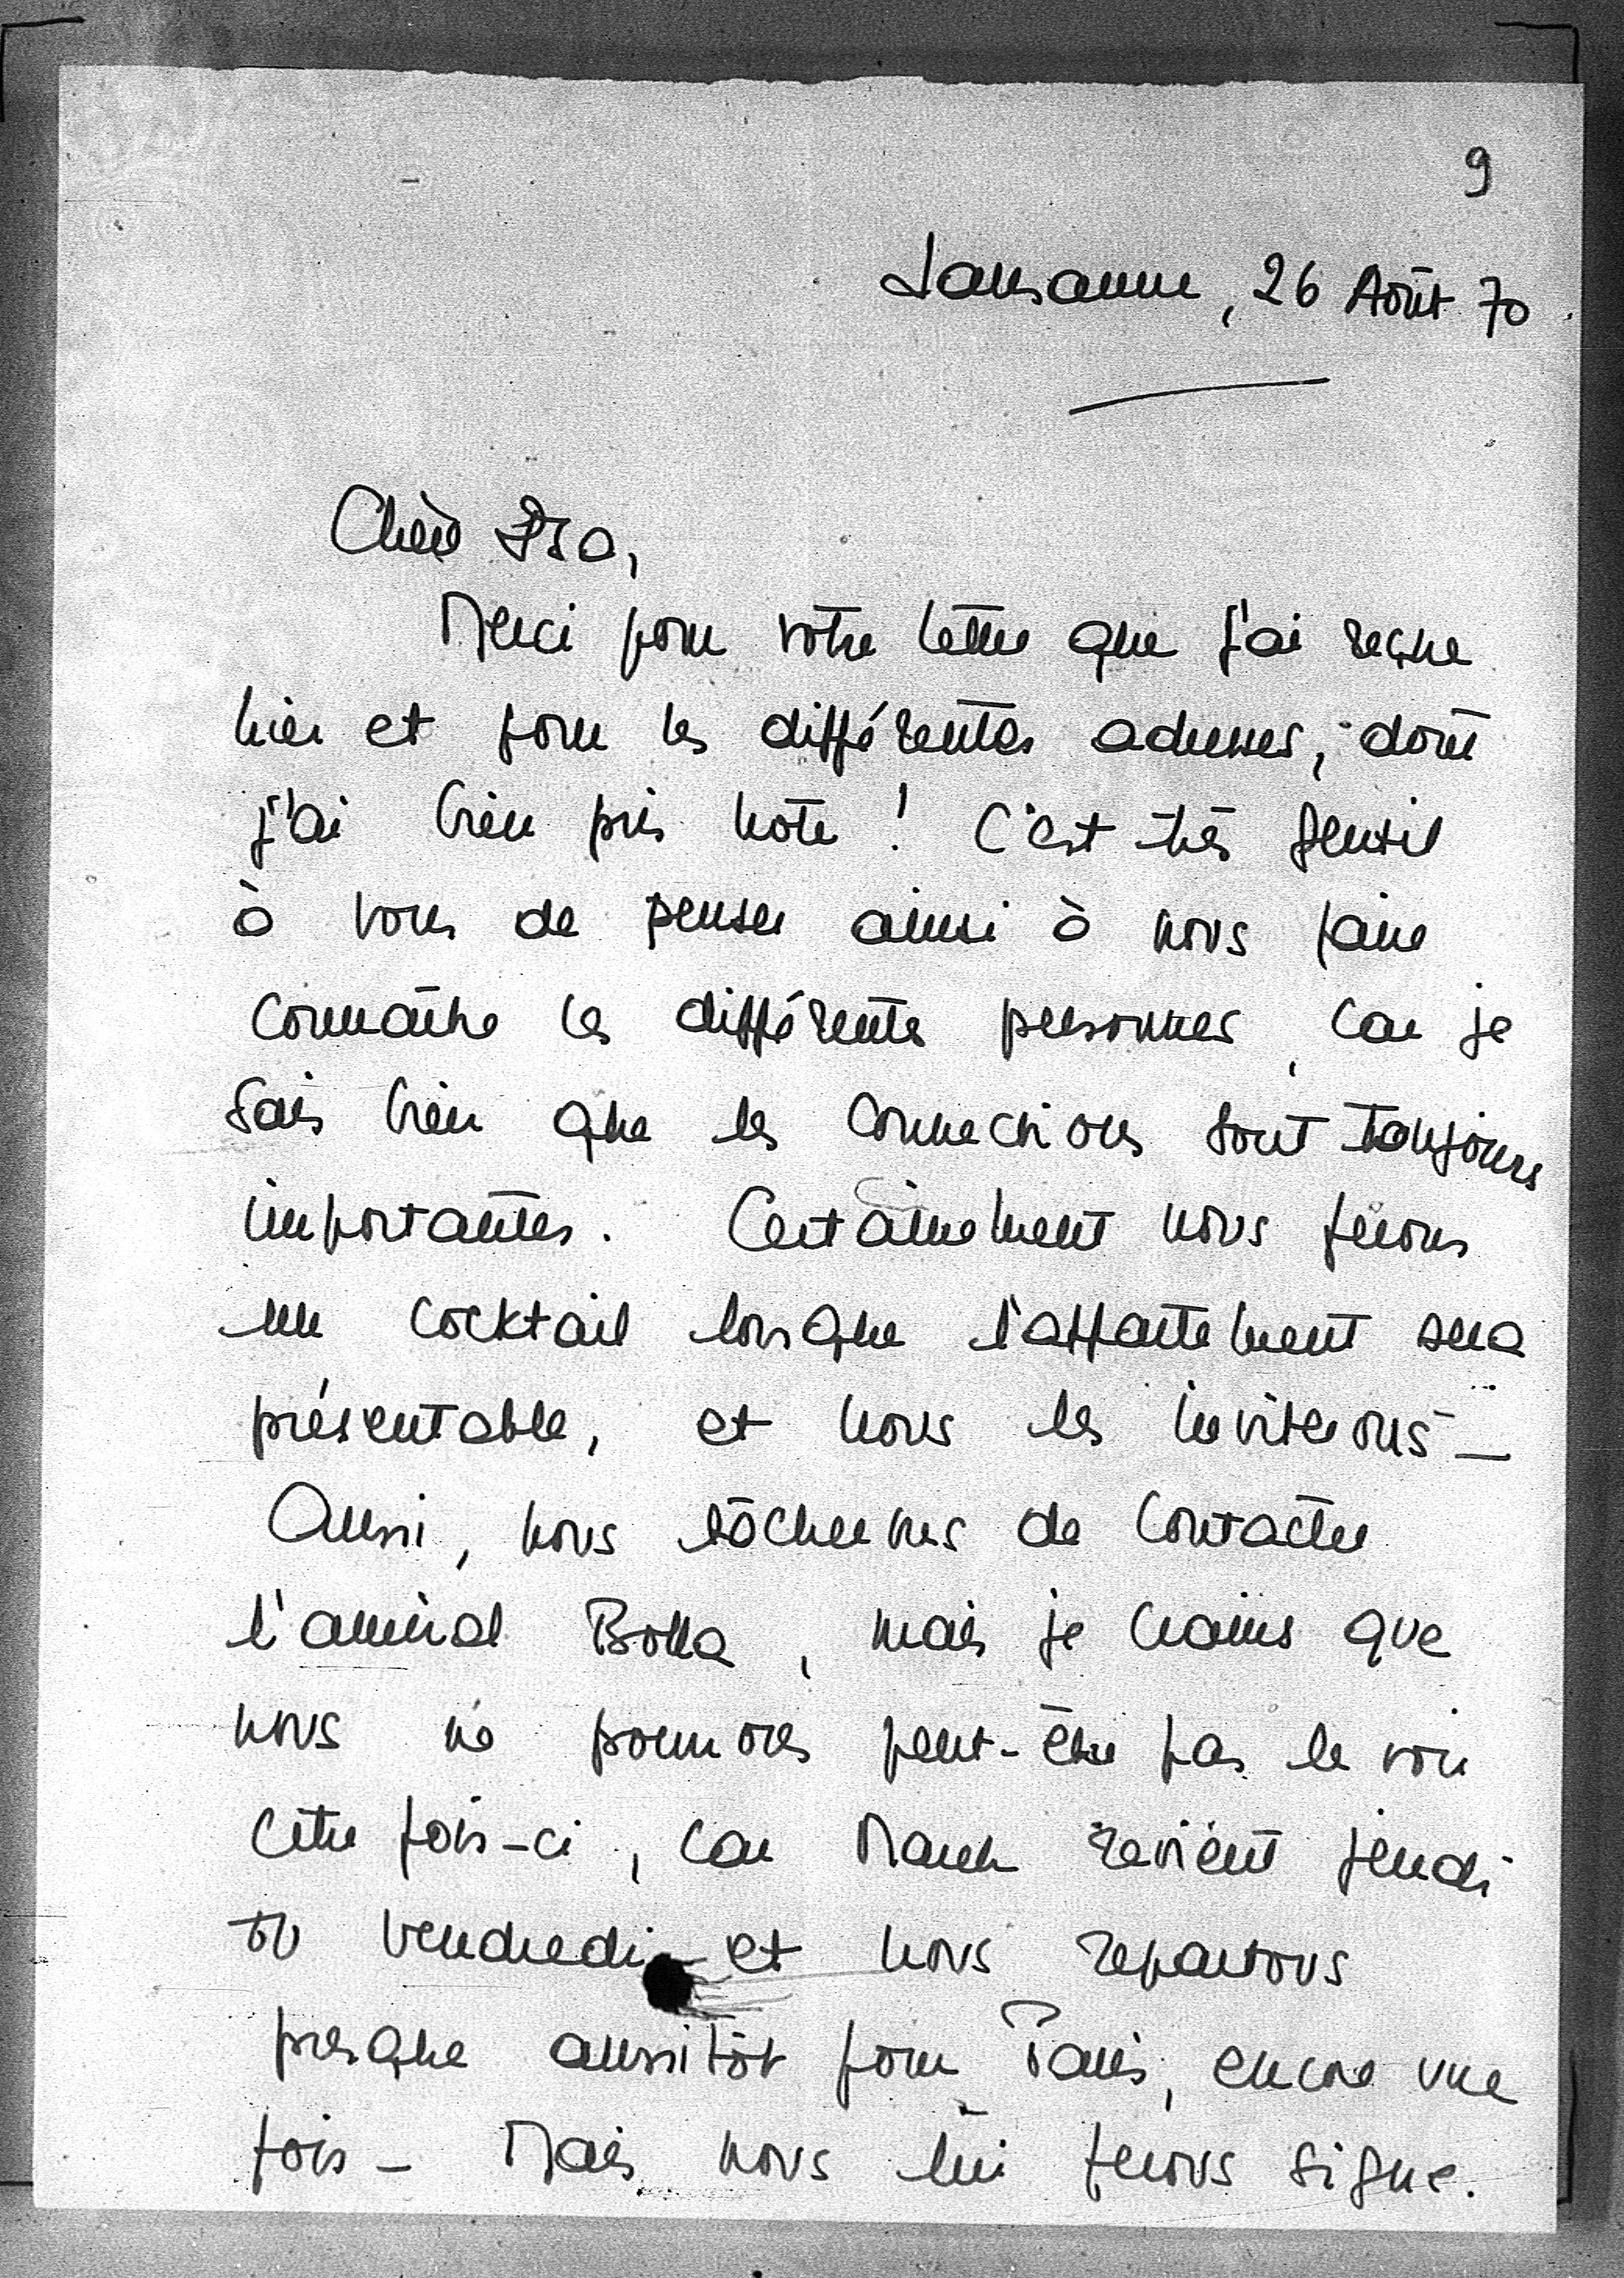 9
Lausanne, 26 Août 70.
Chère Isa,
Merci pour votre lettre que j'ai reçue
hier et pour les différentes adresses, dont
j'ai bien pris note ! C'est très gentil
à vous de penser ainsi à nous faire
connaître les différentes personnes, car je
sais bien que les connections sont toujours
importantes. Certainement nous ferons
un cocktail lorsque l'appartement sera
présentable, et nous les inviterons –
Aussi, nous tâcherons de contacter
l'amiral, mais je crains que
nous ne pourrons peut-être pas le voir
cette fois-ci, car revient jeudi
ou vendredi et nous repartons
presque aussitôt pour Paris, encore une
fois – Mais nous lui ferons signe.